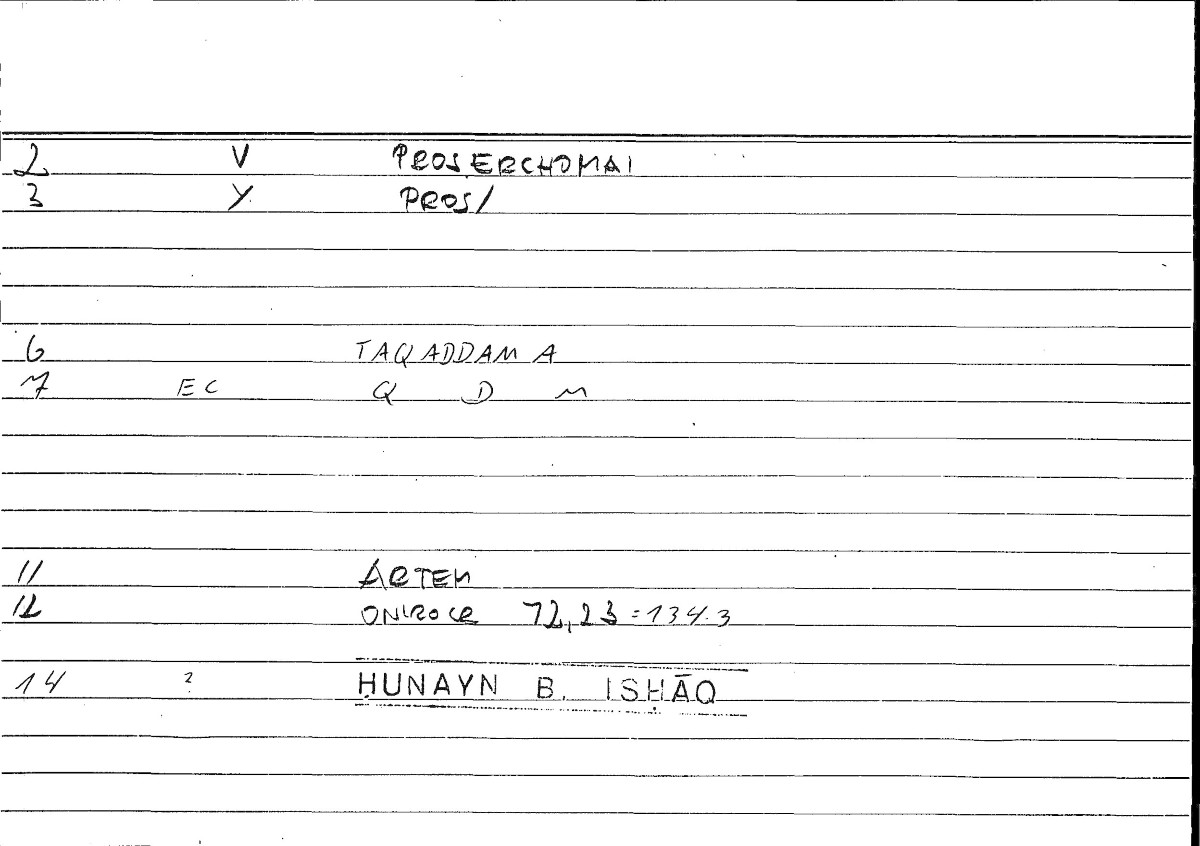 2 V PROSERCHOMAI
3 Y PROS/
6 TAQADDAMA
7 EC Q D M
11 ARTEM
12 ONIROCR 72,23 = 134.3
14 ? ḤUNAYN B. ISḤĀQ